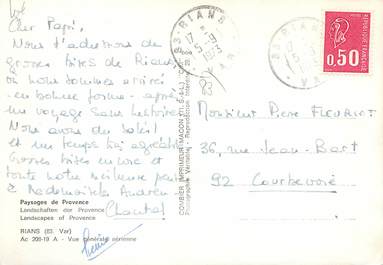 Cher Papi,
Nous t'adressons de
grosses bises de Rians
où nous sommes arrivés
en bonne forme après
un voyage sans histoire
Nous avons du soleil
et un temps très agréable
Grosses bises encore et
toute notre
à Mademoiselle Andrée
Chantal
Paysages de Provence
Landschaften der Provence
Landscapes of Provence
RIANS (83. Var)
Ac 208-19 A - Vue générale aérienne
COMBIER IMPRIMEUR MACON
83 RIANS
17 H
5-9
1973
VAR
83 RIANS
17 H
VAR
0,50
Monsieur Pierre FLEURIOT
36, rue Jean-Bart
92 Courbevoie